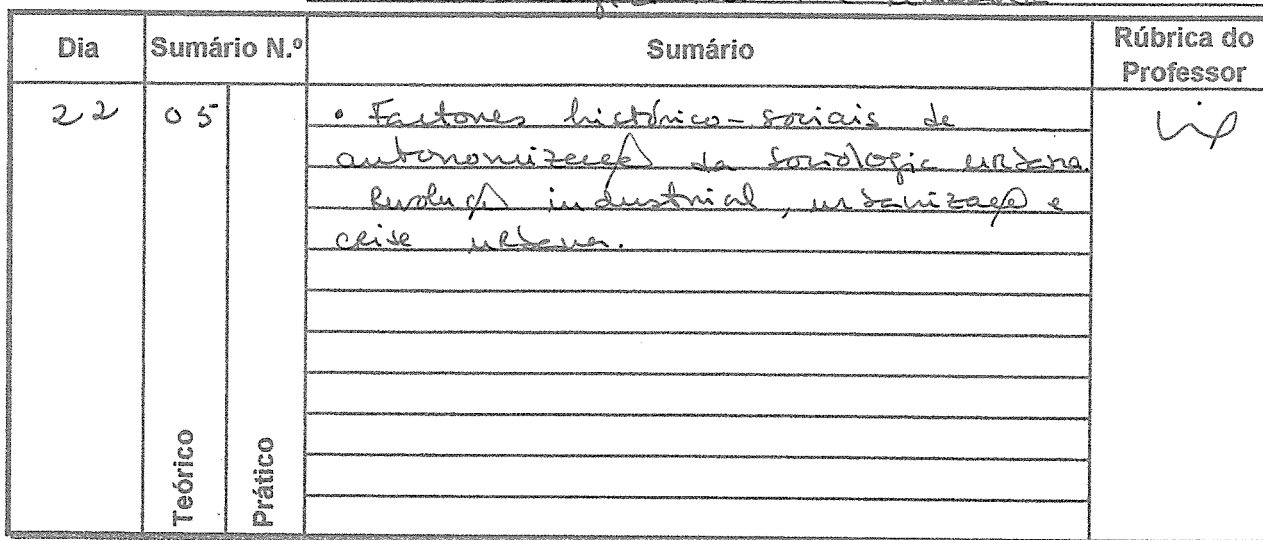 Dia Sumário N.º Sumário Rúbrica do Professor
22 05 • Factores histórico-sociais de
autonomização da Sociologia urbana.
Revolução industrial, urbanização e
crise urbana.
Teórico
Prático